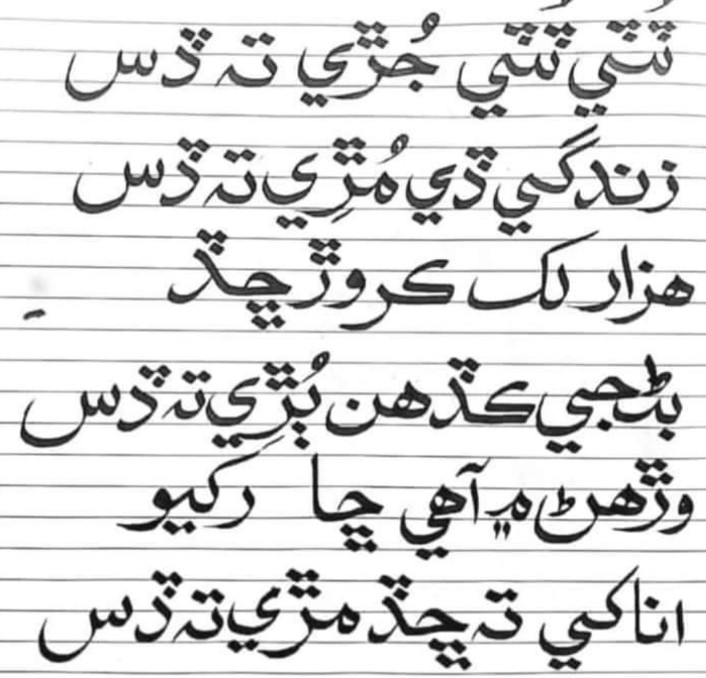 ٽُٽي ٽُٽي جُڙي تہ ڏس
زندگي ڏي مُڙِي تہ ڏس
هزار لک ڪروڙ ڇڏ
بڻجي ڪڏهن پُڙِي تہ ڏس
وڙهڻ ۾ آهي ڇا رَکيو
انا کي تہ ڇڏ مڙي تہ ڏس